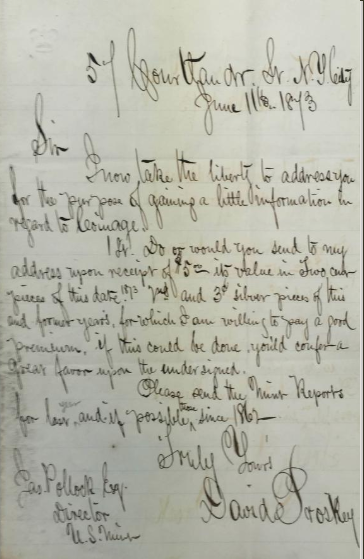 57 Courtlandt St. N.Y City
June 11th 1873
Sir
I now take the liberty to address you
for the purpose of gaining a little information in
regard to Coinage.
1st. Do or would you send to my
address upon receipt of $5.00 its value in Two cent
pieces of this date. 1873 2nd and 3ct silver pieces of this
and former years, for which I am willing to pay a good
premium. If this could be done, you'ld confer a
Great favor upon the undersigned.
Please send the Mint Reports
for last year, and if possible those since 1862
Truly Yours
David Proskey
Jas Pollock Esq.
Director
U.S. Mint